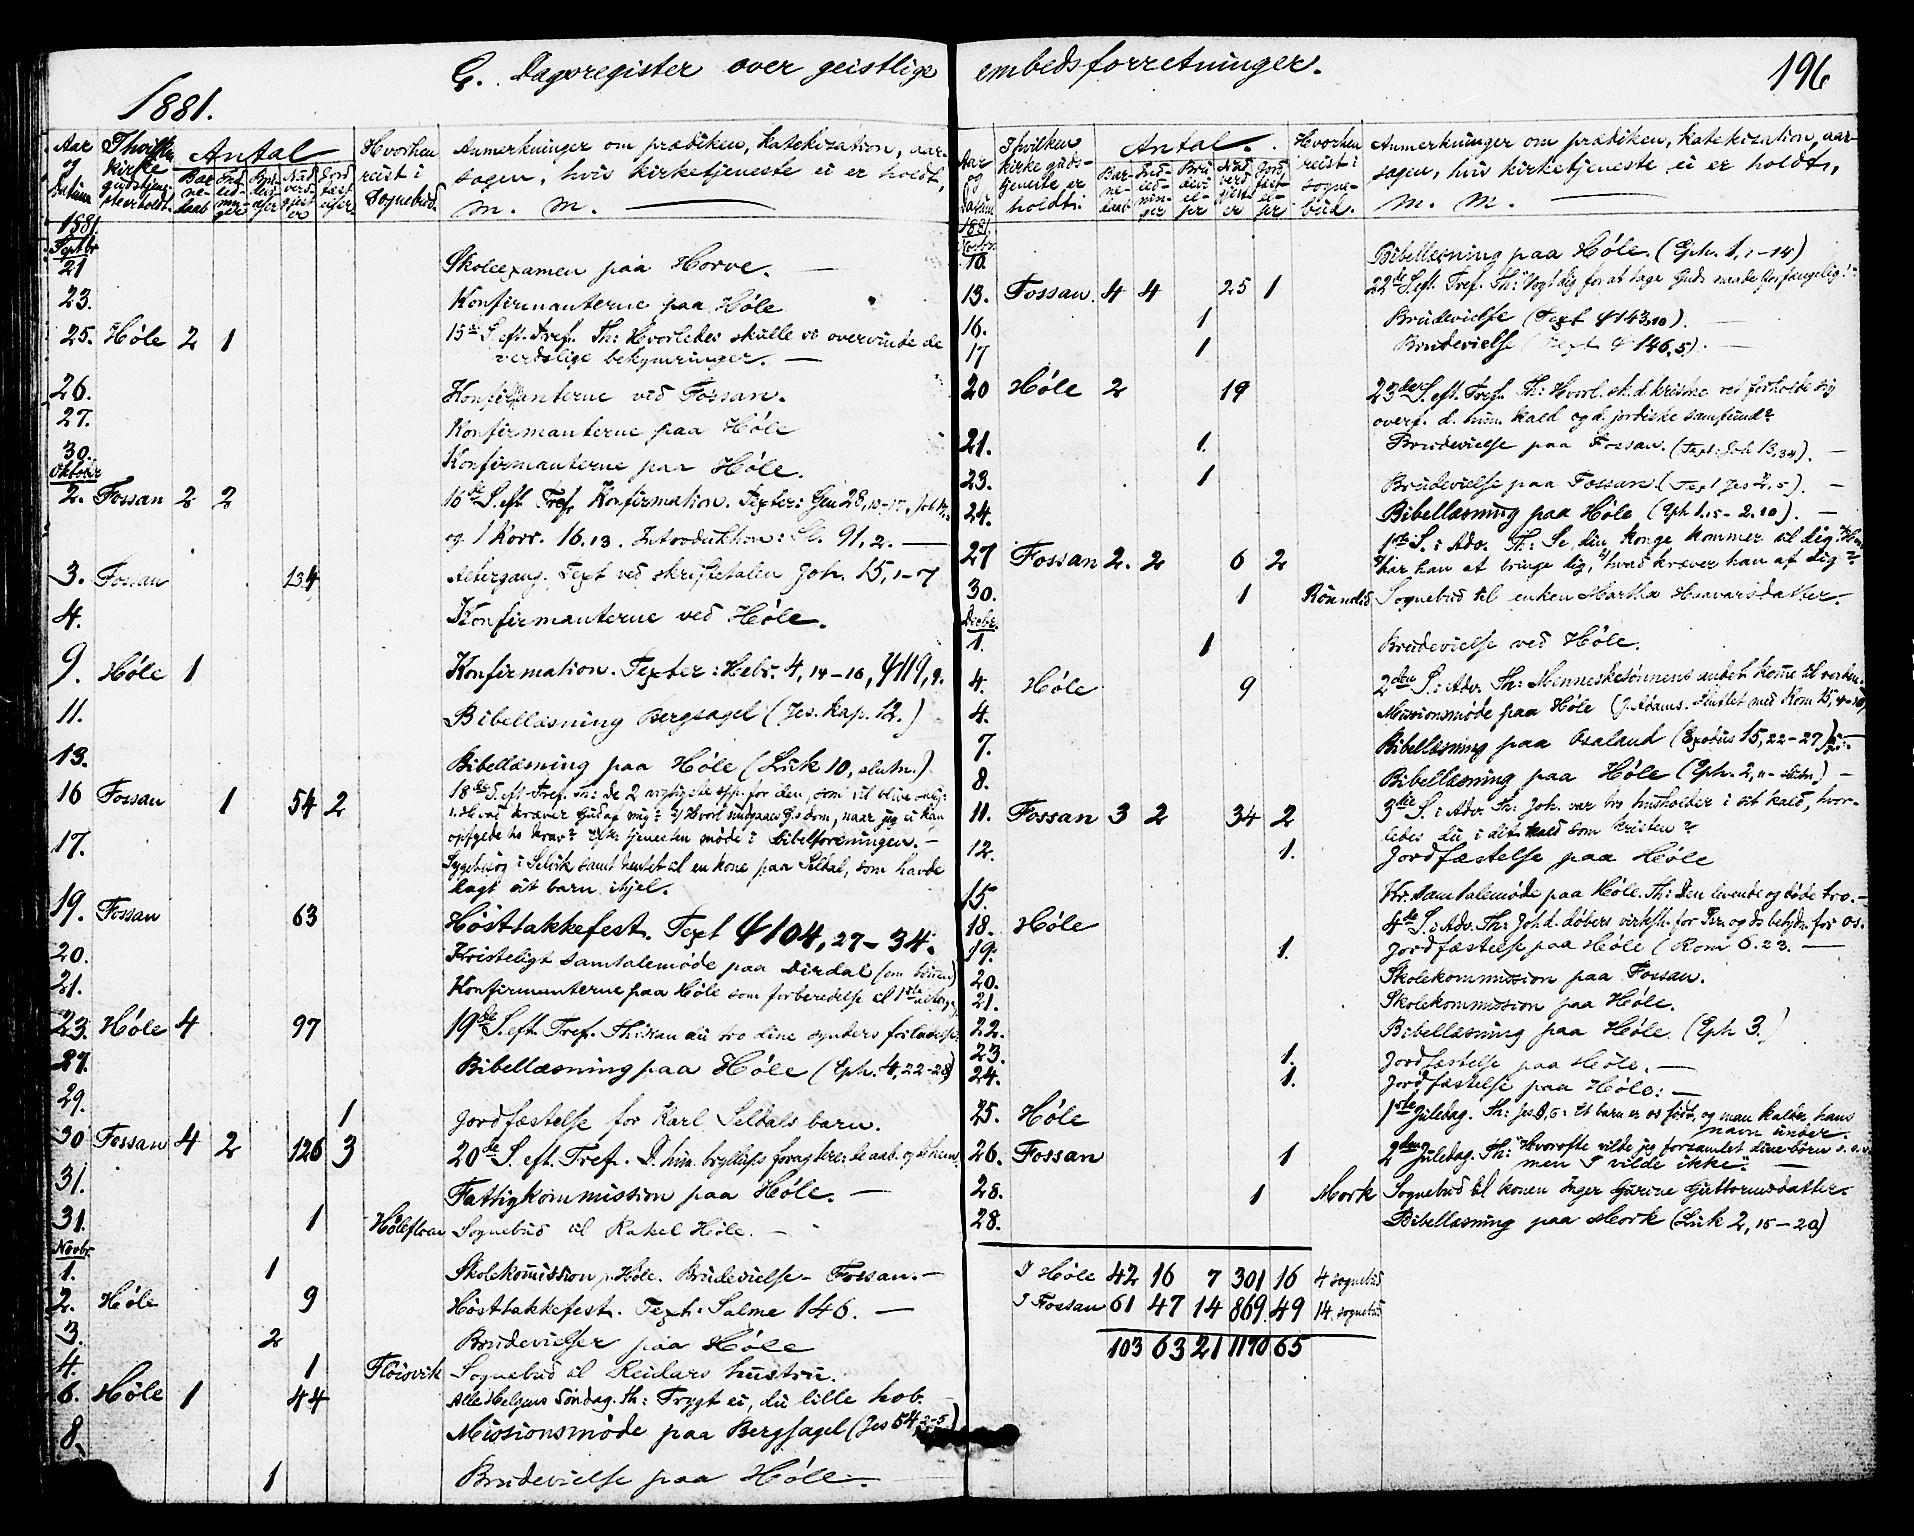 G. Dagsregister over geistlige embedsforretninger.
196
1881.
Aar og Datum
Antal
Hvorhen reist i Sognebud.
Anmerkninger om prædiken, katekization, aar-
sagen, hvis kirketjeneste ei er holdt,
m. m.
1881.
Septbr
21 Skoleexamen paa Horve.
23. Konfirmanterne paa Høle
25. Høle 2 1 15de S. eft. Tref. Th: Hvorledes skulle vi overvinde de
verdslige bekymringer.
26. Konfirmanterne ved Fossan.
27. Konfirmanterne paa Høle
30. Konfirmanterne paa Høle.
Oktober
2. Fossan 2 2 16de S. eft. Tref. Konfirmation. Texter: Gen 28,10-17,
og 1 Korr. 16.13. Introduktion: 91,2.
3. Fossan 134 Altergang. Text ved skriftetalen Joh. 15, 1-7
4. Konfirmanterne ved Høle.
9. Høle 1 Konfirmation. Texter: Hebr. 4, 14-16, ψ119, 9.
11. Bibellæsning Bergsagel (Jes. Kap. 12.)
13. Bibellæsning paa Høle (Luk 10, slutn.)
16 Fossan 1 54 2 18de S. eft. Tref. Th: De 2 vigtigste for den, som vil blive
kræver Gud af mig? 2) Hvorl. undgaaes G.s dom, naar jeg ei kan
opfylde hs krav? Efter tjenesten møde i Bibelforeningen.
17. Sygebesøg i Selvik samt hentet til en kone paa Seldal, som havde
lagt sit barn ihjel.
19. Fossan 63 Høsttakkefest. Text ψ104, 27-34.
20. Kristeligt samtalemøde paa Dirdal (om bønnen)
21. Konfirmanterne paa Høle som forberedelse til 1ste
23. Høle 4 97 19de S. eft. Tref. Th: Kan du tro dine synders forladelse
27. Bibellæsning paa Høle (Eph. 4, 22-28)
29. 1 Jordfæstelse for Karl Seldals barn.
30 Fossan 4 2 126 3 20de S. eft. Tref. D. him. bryllups foragtere:
31. Fattigkommission paa Høle.
31. 1 Sognebud til Rakel Høle.
Novbr.
1. 1 Skolekommission p. Høle. Brudevielse - Fossan.
2. Høle 9 Høsttakkefest. Text: Salme 146.
3. 2 Brudevielser paa Høle
4. 1 Fløisvik Sognebud til Reidars hustru.
6. Høle 1 44 Alle Helgens Søndag. Th: Frygt ei, du lille hob.
8. Missionsmøde paa Bergsagel (Jes 54, 2-5)
1 Brudevielse paa Høle.
Aar og Datum
I hvilken kirke gudstjeneste er holdt.
Antal.
Hvorhen reist i sognebud.
Anmerkninger om prædiken, katekization, aar-
sagen, hvis kirketjeneste ei er holdt,
m. m.
1881.
Novbr.
10. Bibellæsning paa Høle. (Eph. 1, 1-14)
13. Fossan. 4 4 25 1 22de S. eft. Tref. Th: Vogt dig for at tage Guds naade forfængelig!
16. 1 Brudevielse (Text ψ143,10).
17 1 Brudevielse (Text ψ 146,5).
20 Høle 2 19 23de S. eft. Tref. Th: Hvorl. sk. d. kristne ret forholde sig
overf. d. him. kald og d. jordiske samfund?
21. 1 Brudevielse paa Fossan. (Text: Joh 13,34).
23. 1 Brudevielse paa Fossan. (Text Jes 2, 5).
24. Bibellæsning paa Høle (Eph 1,15 - 2.10).
27 Fossan 2. 2 6 2 1ste S. i Adv. Th: Se, din konge kommer til dig.
har han at bringe dig, 2) hvad kræver han af dig?
30. 1 Sognebud til enken Martha Haavarsdatter.
Decbr.
1. 1 Brudevielse ved Høle.
4. Høle 9 2den S. i Adv. Th: Menneskesønnens andet komme til verden.
4. Missionsmøde paa Høle (J. Adams. Sluttet med Rom 15, 4-10)
7. Bibellæsning paa Osaland (Exodus 15, 22-27)
8. Bibellæsning paa Høle (Eph. 2, 11 - slutn.)
11. Fossan 3 2 34 2 3die S. i Adv. Th: Joh. var tro husholder i sit kald, hvor-
ledes du i dit kald som kristen?
12. 1. Jordfæstelse paa Høle
15. Kr. samtalemøde paa Høle. Th: Den levende og døde tro.
18. Høle 4de S. i Adv. Th: Joh d. døbers virksh. for Jsr. og ds betydn. for os.
19. 1. Jordfæstelse paa Høle (Rom 6.23.
20. Skolekommission paa Fossan.
21. Skolekommission paa Høle.
22. Bibellæsning paa Høle. (Eph 3.)
23. 1. Jordfæstelse paa Høle.
24. 1. Jordfæstelse paa Høle.
25. Høle 1ste Juledag. Th: Jes 9,6: Et barn er os født, og man kalder hans
navn under.
26. Fossan 1 2den Juledag. Th: "Hvorofte vilde jeg forsamlet dine børn s. s. v.
men I vilde ikke".
28. 1 Mork Sognebud til konen Inger Gurine Guttormsdatter.
28. Bibellæsning paa Mork (Luk 2, 15-20)
I Høle 42 16 7 301 16 4 sognebud
I Fossan 61 47 14 869. 49 14. sognebud
103 63 21 1170 65